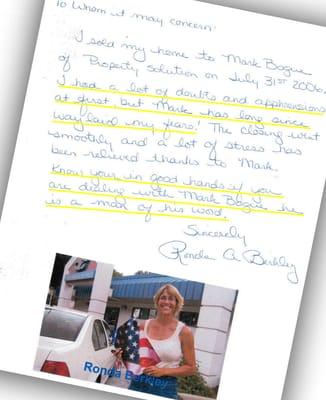 To Whom it may concern:
I sold my home to Mark Bogue
of Property Solution on July 31ST 2006.
I had a lot of doubts and apphrensions
at first but Mark has long since
waylaid my fears! The closing went
smoothly and a lot of stress has
been relieved thanks to Mark.
Know your in good hands if you
are dealing with Mark Bogue he
is a man of his word.
Sincerely
Ronda A Berkley
Ronda Berkley